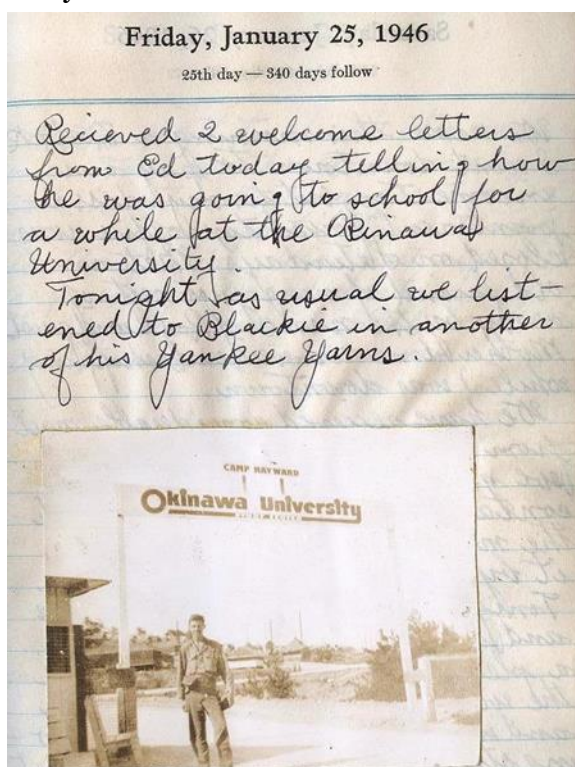 Friday, January 25, 1946
25th day — 340 days follow
Recieved 2 welcome letters
from Ed today telling how
he was going to school for
a while at the Okinawa
University.
Tonight as usual we list-
ened to Blackie in another
of his Yankee Yarns.
CAMP HAYWARD
Okinawa University
STUDY CENTER